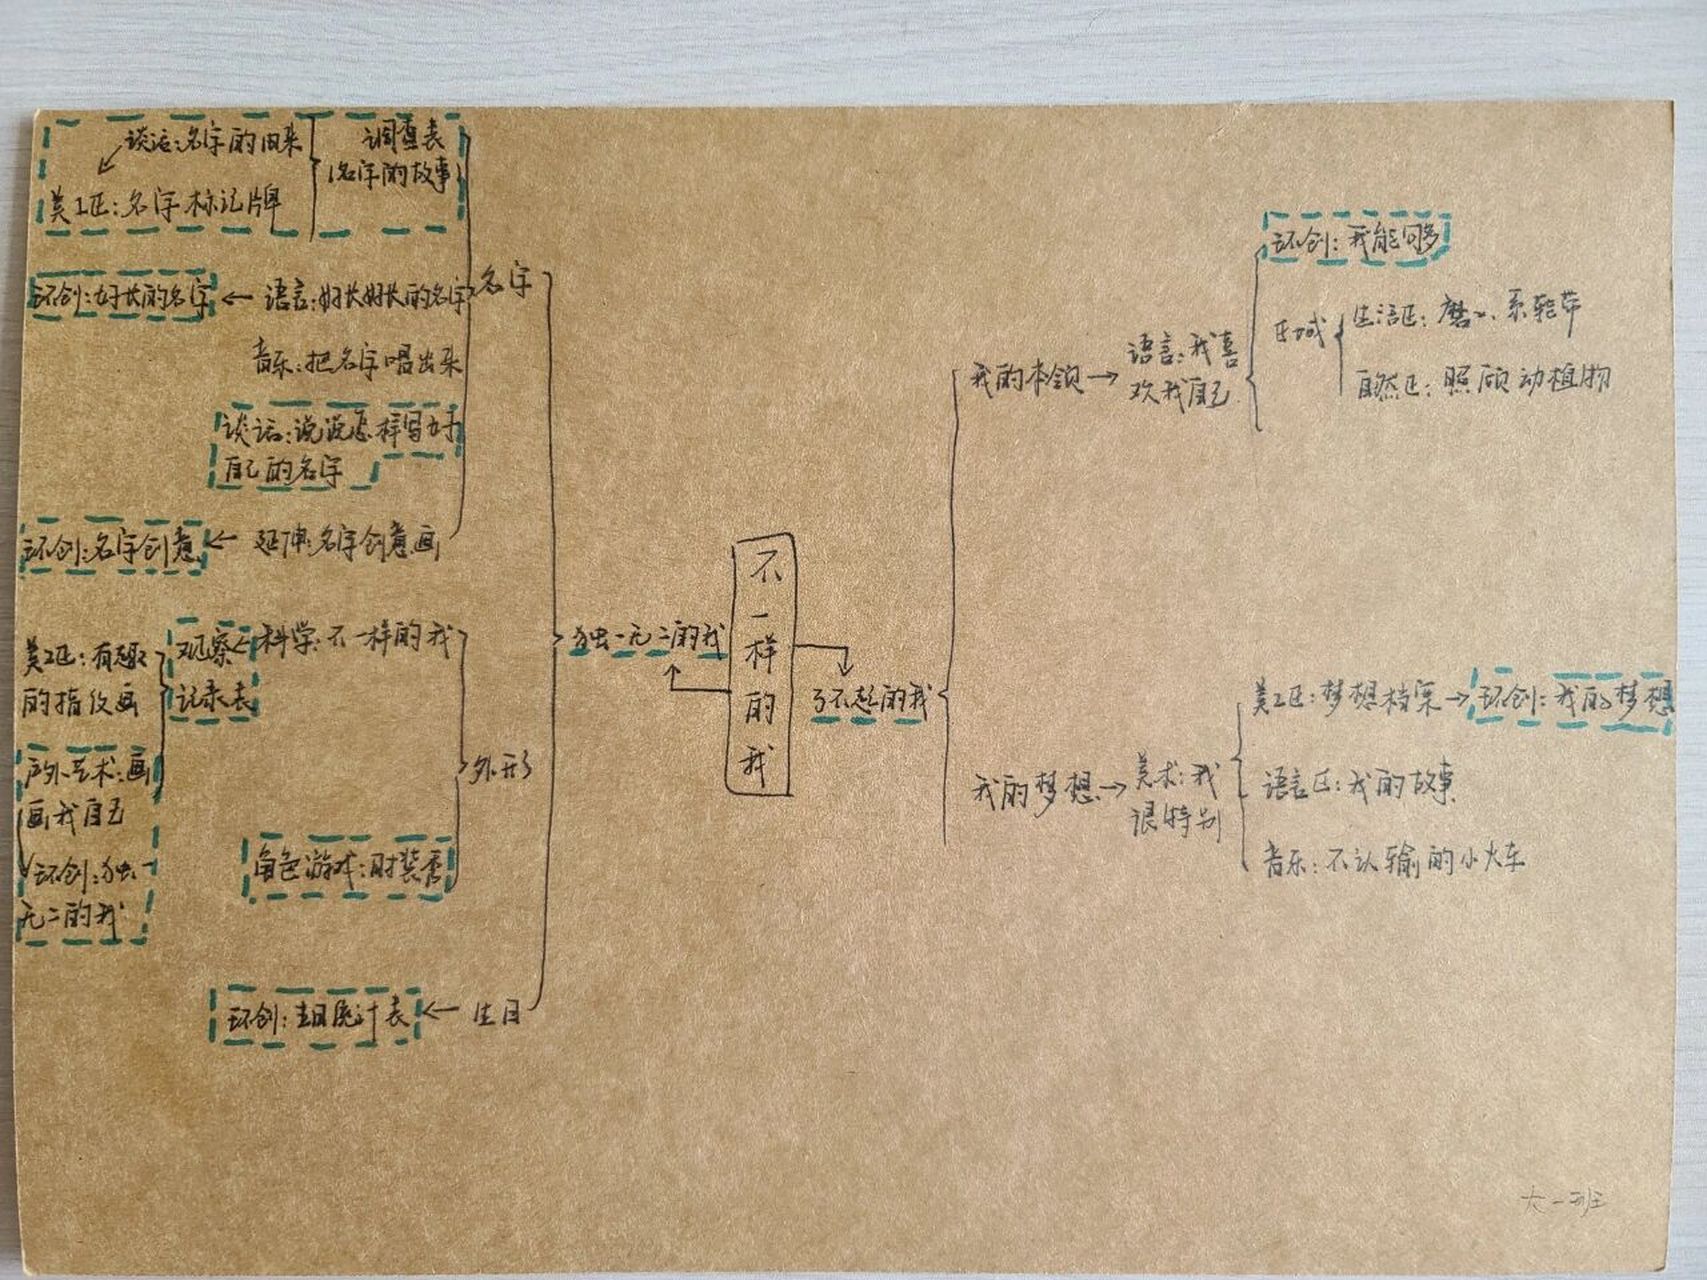 谈话:名字的由来
调查表
(名字的故事
美工区:名字标记牌
环创:好长的名字
语言:好长好长的名字
名字
音乐:把名字唱出来
谈话:说说怎样写好
自己的名字
环创:名字创意
延伸:名字创意画
美工区:有趣
的指纹画
观察
记录表
科学:不一样的我
户外艺术:画
画我自己
环创:独一
无二的我
外形
角色游戏:时装秀
环创:生日统计表
生日
独一无二的我
不一样的我
了不起的我
我的本领
语言:我喜
欢我自己
环创:我能够
区域
生活区:磨豆、系鞋带
自然区:照顾动植物
我的梦想
美术:我
很特别
美工区:梦想档案
环创:我的梦想
语言区:我的故事
音乐:不认输的小火车
大一班